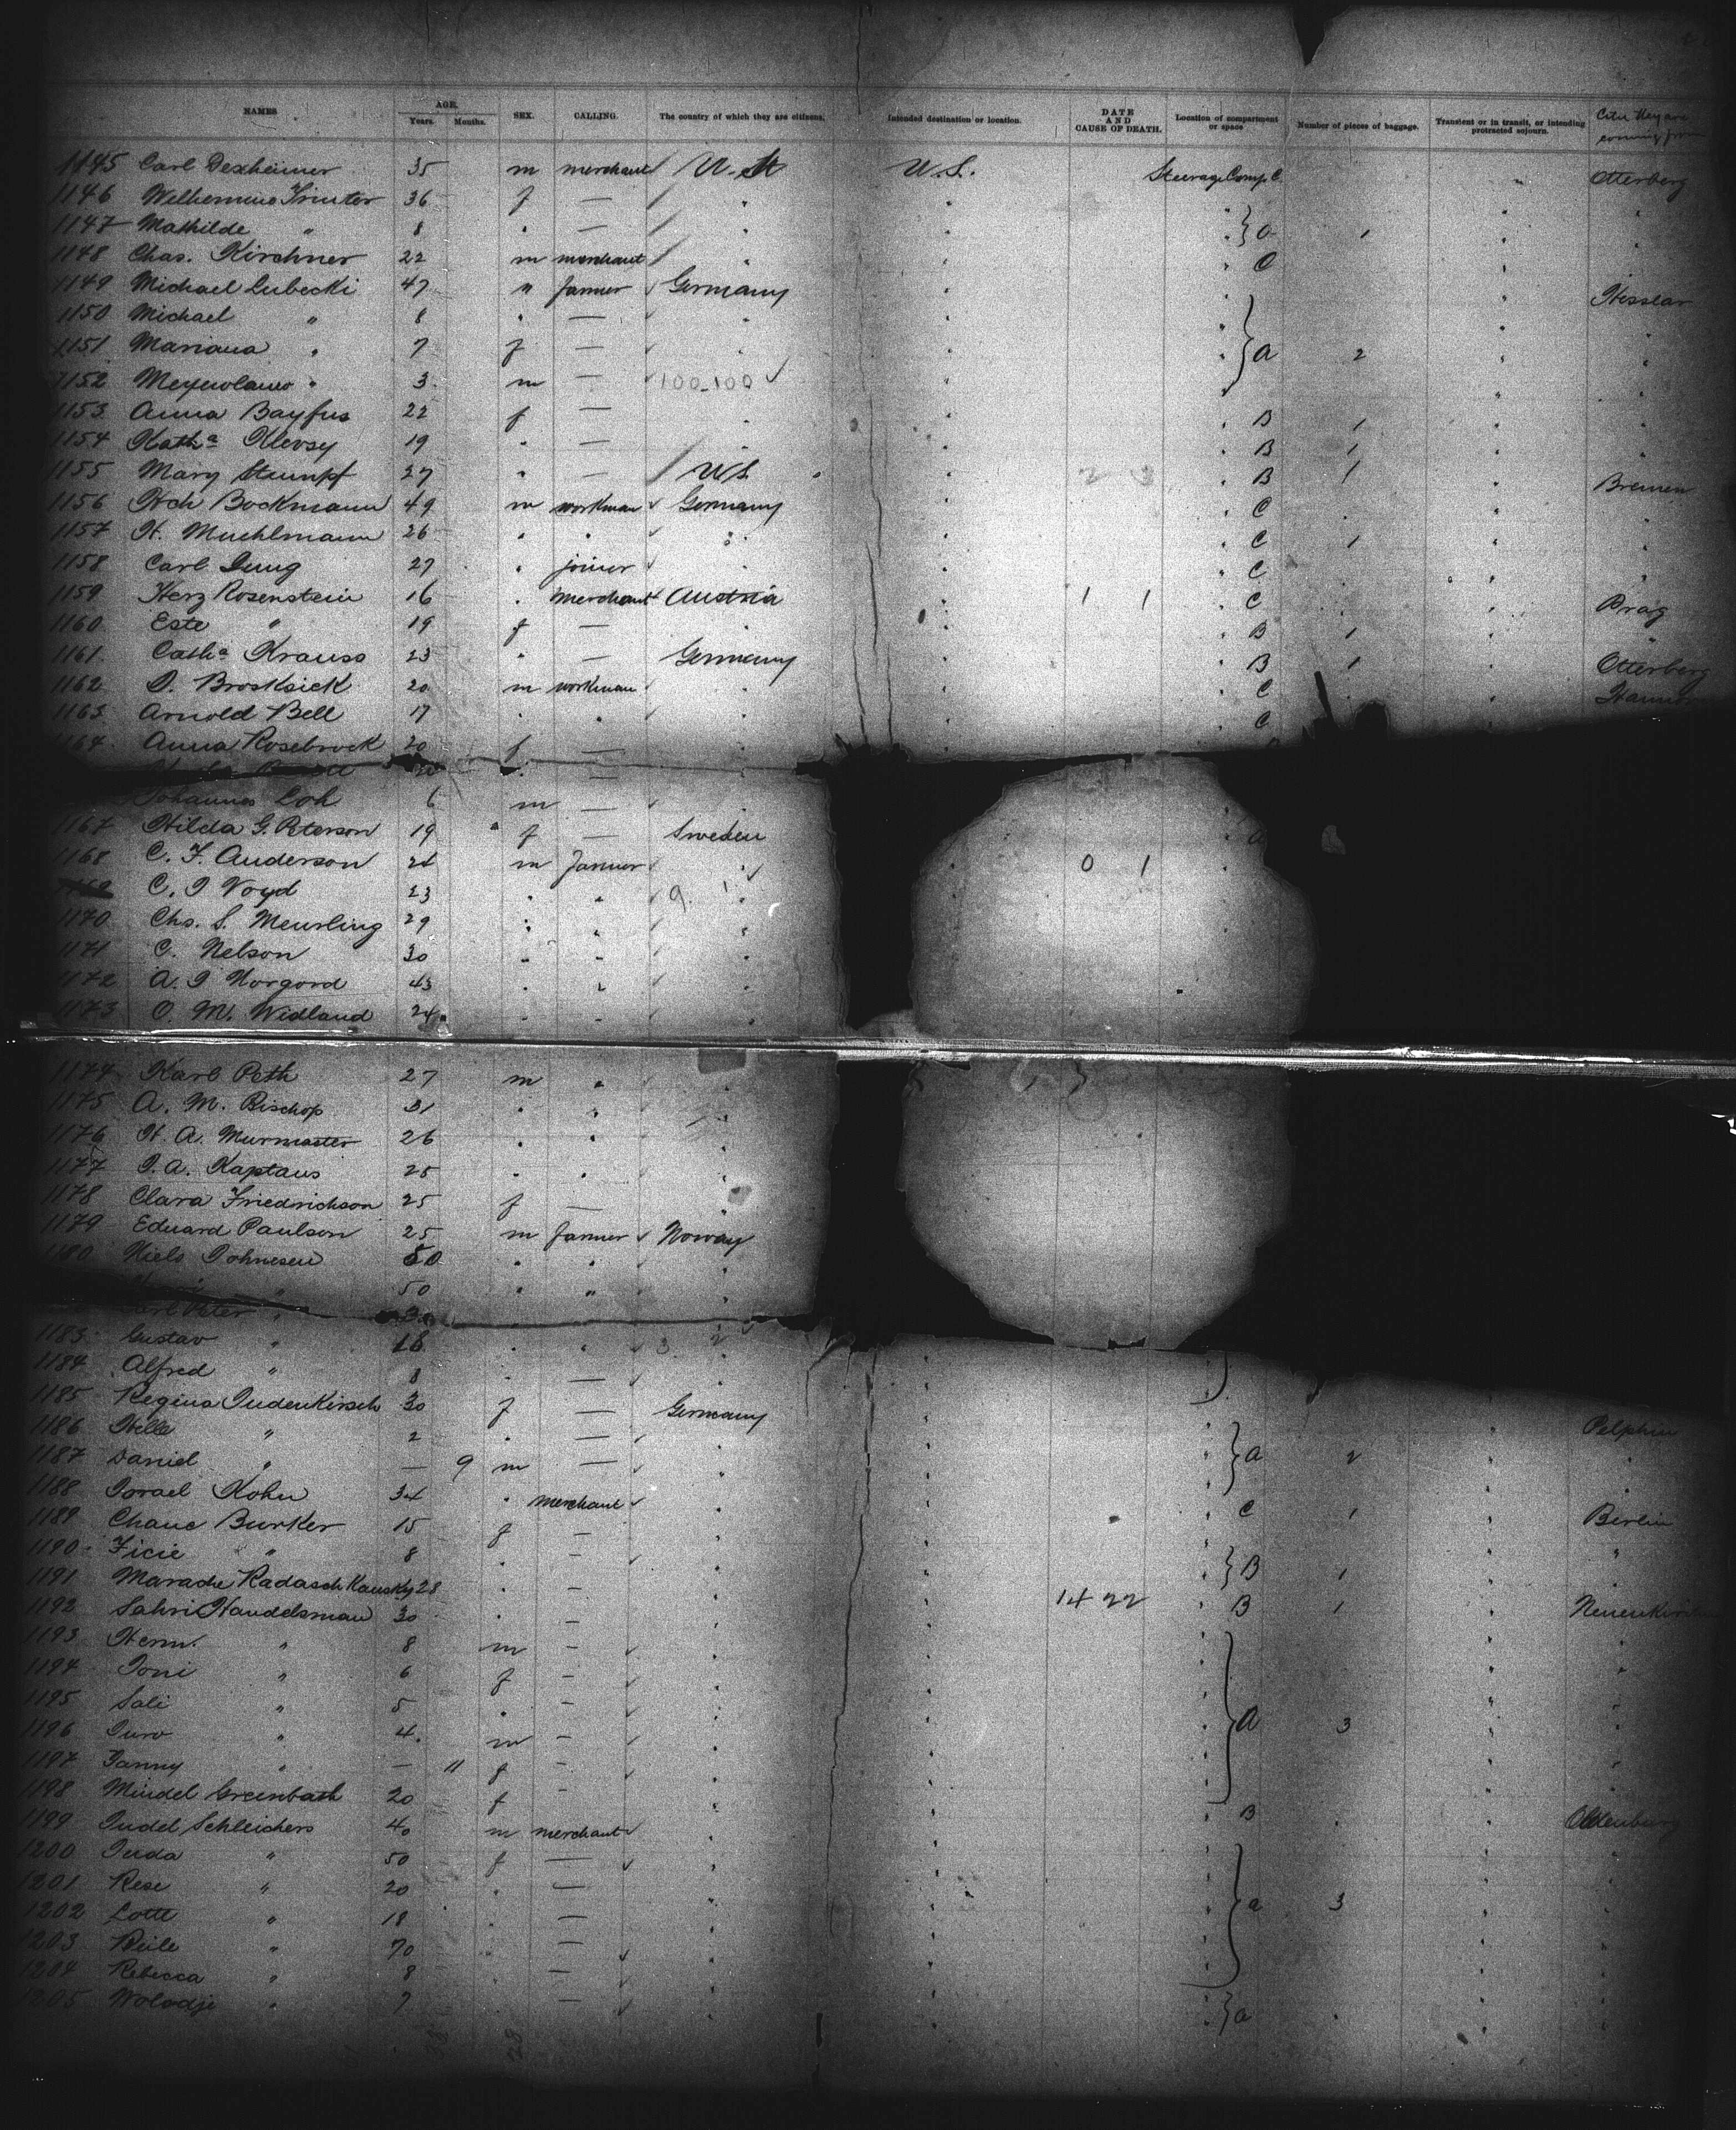 NAMES AGE. Years. Months. SEX. CALLING. The country of which they are citizens. Intended destination or location. DATE AND CAUSE OF DEATH. Location of compartment or space Number of pieces of baggage. Transient or in transit, or intending protracted sojourn. City they are coming from
1145 Carl Dexheimer 35 m merchant U. St U.S. Steerage Comp. C. Otterberg
1146 36 f — "
1147 Mathilde " 8 " — " } a 1
1148 Chas. Kirchner 22 m merchant " C
1149 Michael Lubecki 47 " farmer Germany
1150 Michael " 8 " — "
1151 Mariana " 7 f — " } a 2
1152 " 3 m — 100-100
1153 Anna Bayfus 22 f — " B 1
1154 Kath.a 19 " — " B 1
1155 Mary Stumpf 27 " — U.S. 2 3 B 1 Bremen
1156 Hch Bockmann 49 m workman Germany C
1157 H. Muehlmann 26 " " " C 1
1158 Carl 27 " joiner " C
1159 Herz Rosenstein 16 " merchant Austria 1 1 C Prag
1160 Este " 19 f — " B 1
1161. Cath.a Krauss 23 " — Germany B 1 Otterberg
1162 O. Brosksick 20 m workman " C
1163 Arnold Bell 17 " " " C
1164. Anna Rosebrock 20 f — "
Johannes Loh 6 m — "
1167 Hilda G. Peterson 19 f — Sweden
1168 C. F. Anderson 24 m farmer " 0 1
C. J Voyd 23 " " 9 1
1170 Chs. S. Meurling 29 " " "
1171 C. Nelson 30 " " "
1172 A. J Norgord 43 " " "
1173 O. M. Widland 24 " " "
1174 Karl Peth 27 m " "
1175 A. M. Bischop 31 " " "
1176 H. A. Murmaster 26 " " "
1177 J. A. Kaptaus 25 " " "
1178 Clara Friedrichson 25 f — "
1179 Eduard Paulson 25 m farmer Norway
1180 Niels Johnesen 50 " " "
" 50 " " "
Karl Peter " "
1183 Gustav " 16 " " 3 2
1184 Alfred " 8 " — "
1185 Regina Judenkirsch 30 f — Germany
1186 " 2 " — " Pelplin
1187 Daniel " — 9 m — " } a 2
1188 Israel Kohn 34 " merchant " C 1 Berlin
1189 Chane Burker 15 f — "
1190 Ficie " 8 " — " } B 1
1191 28 " — " 14 22 B 1
1192 Handelsman 30 " — "
1193 Herm. " 8 m — "
1194 Toni " 6 f — "
1195 Sali " 5 " — "
1196 " 4. m — " } a 3
1197 Fanny " — 11 f — "
1198 Mindel Greenbath 20 f — " B
1199 Judel Schleichers 40 m merchant " Oldenburg
1200 Juda " 50 f — "
1201 Rese " 20 " — " } a 3
1202 Lotte " 18 " — "
1203 Reile " 70 " — "
1204 Rebecca " 8 " — "
1205 Wolodji " 7 " — " } a